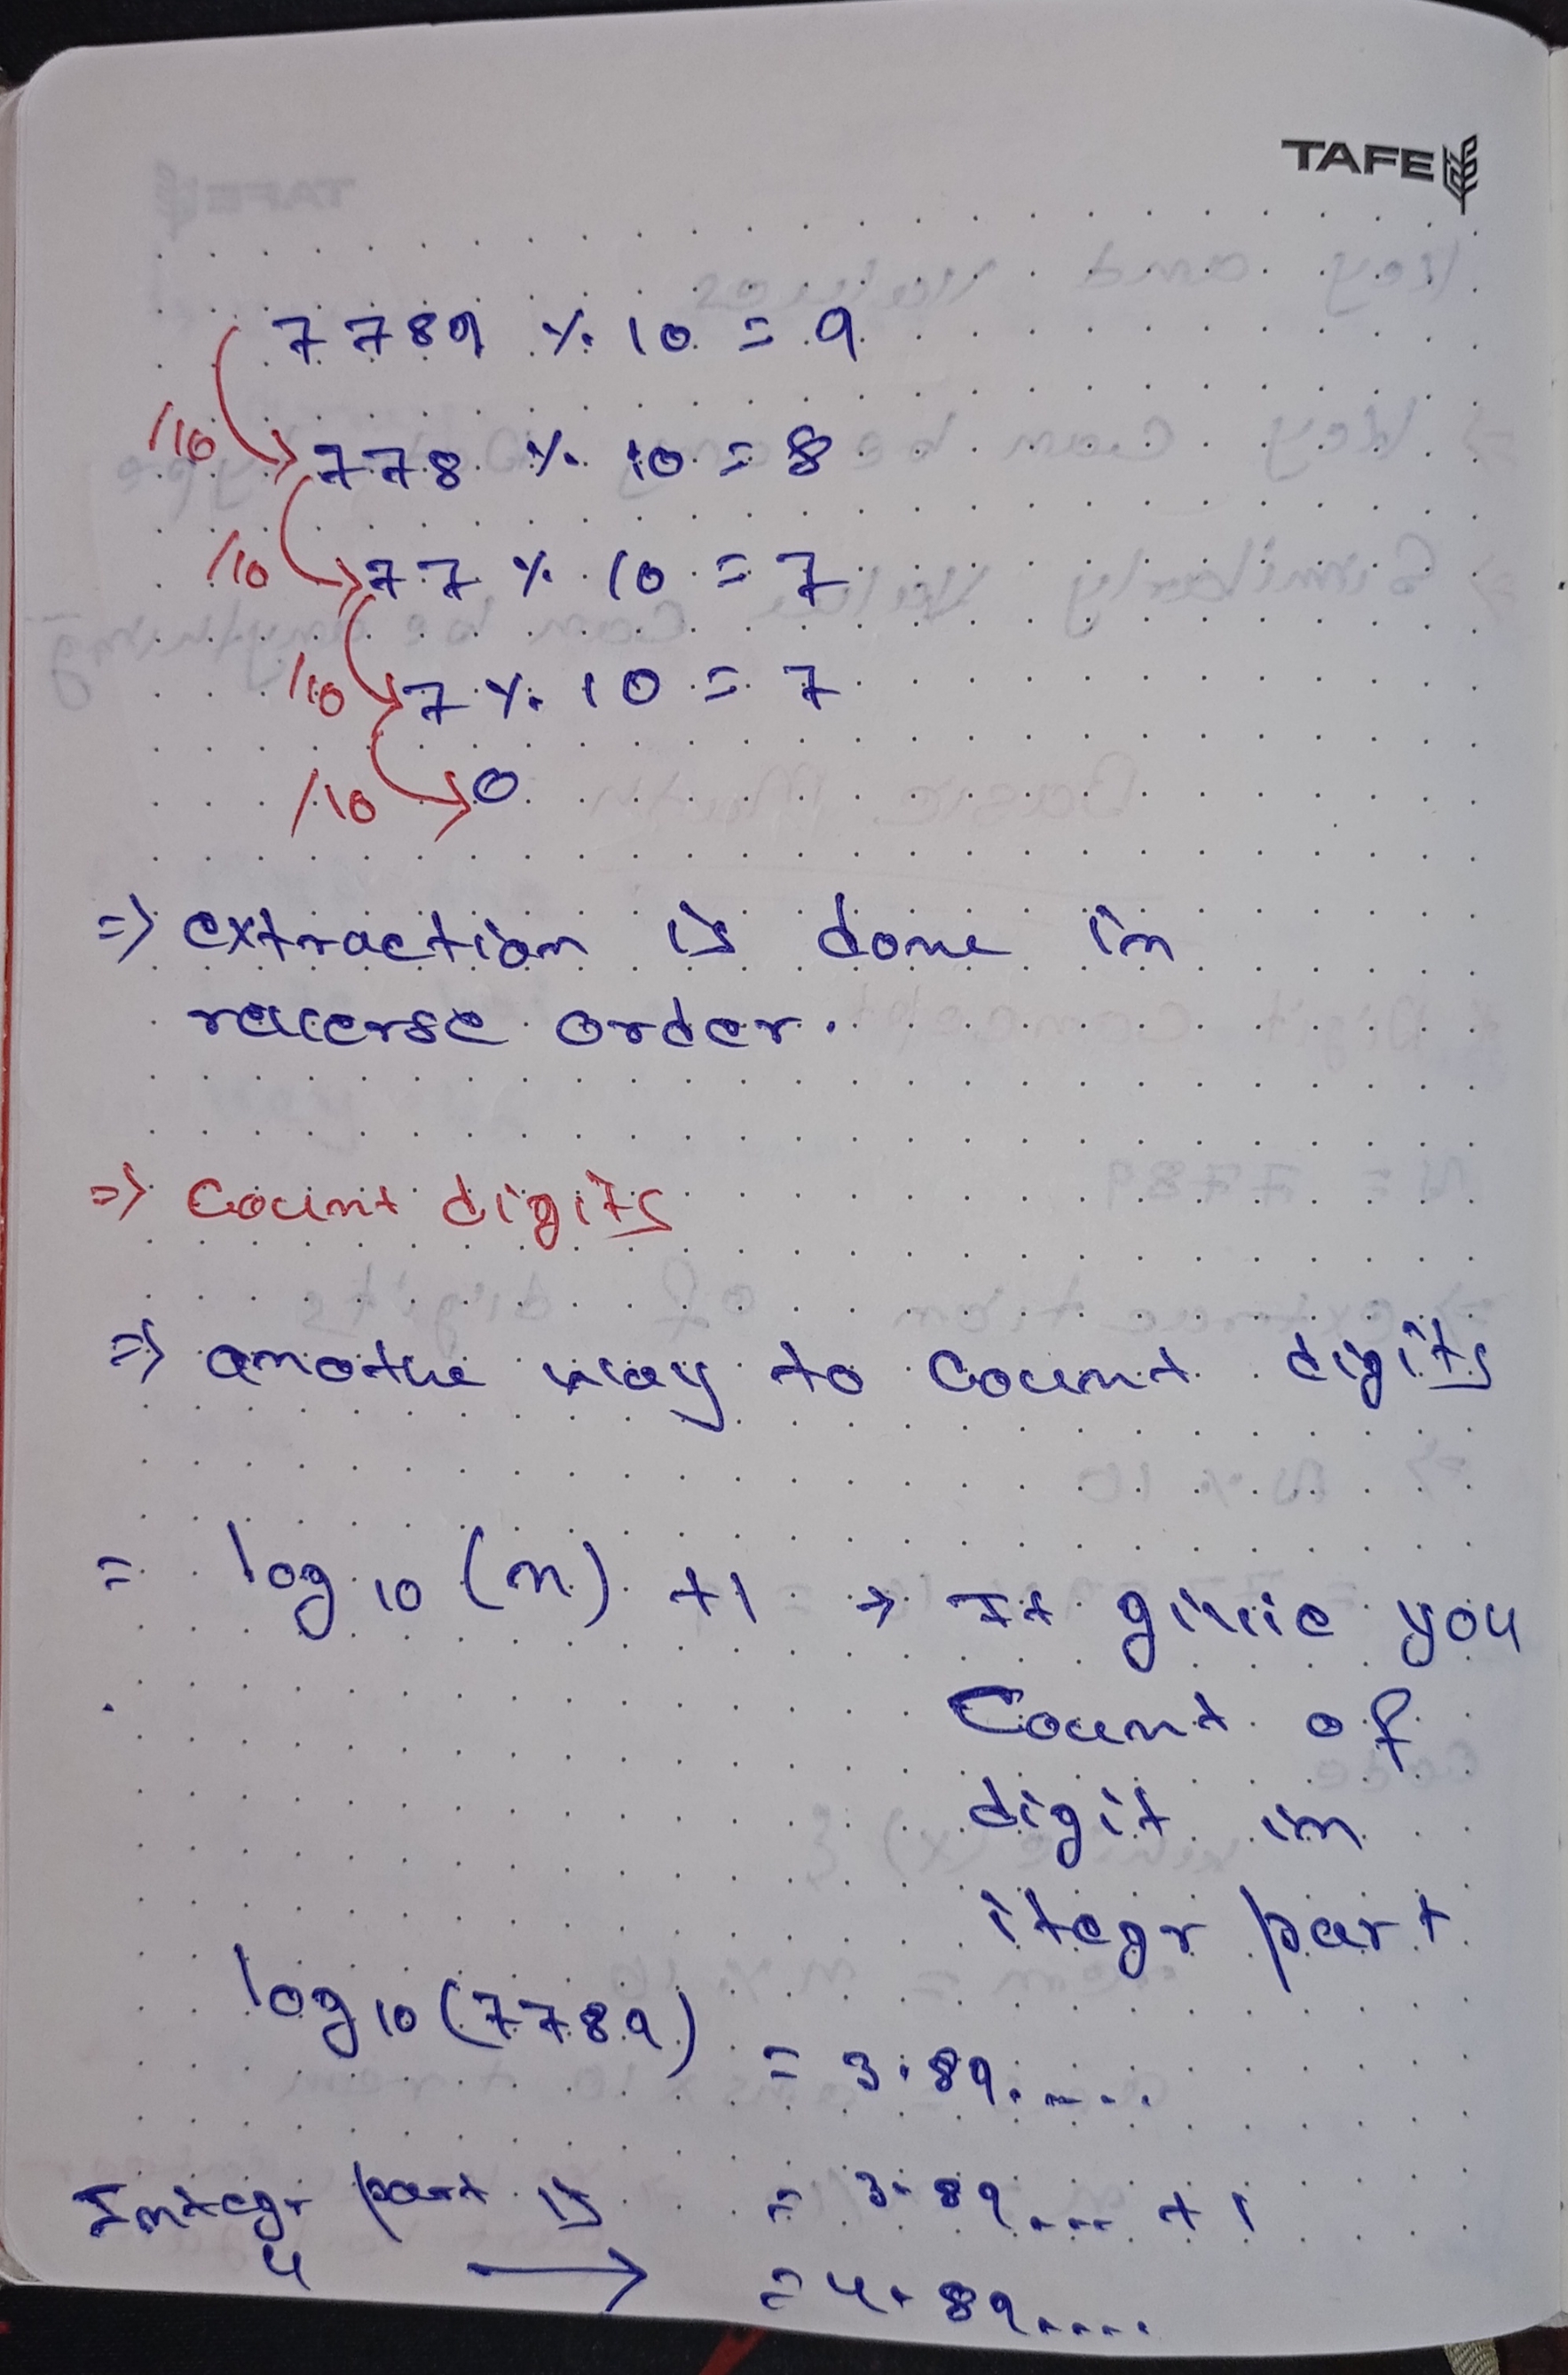 TAFE
7789 % 10 = 9
/10
778 % 10 = 8
/10
77 % 10 = 7
/10
7 % 10 = 7
/10
0
=> extraction is done in
reverse order.
=> Count digits
=> anothe way to Count digits
= log10 (n) +1 → It give you
Count of
digit in
itegr part
log10 (7789)
= 3.89.....
Integr part is = 3.89.... +1
4 → = 4.89.....